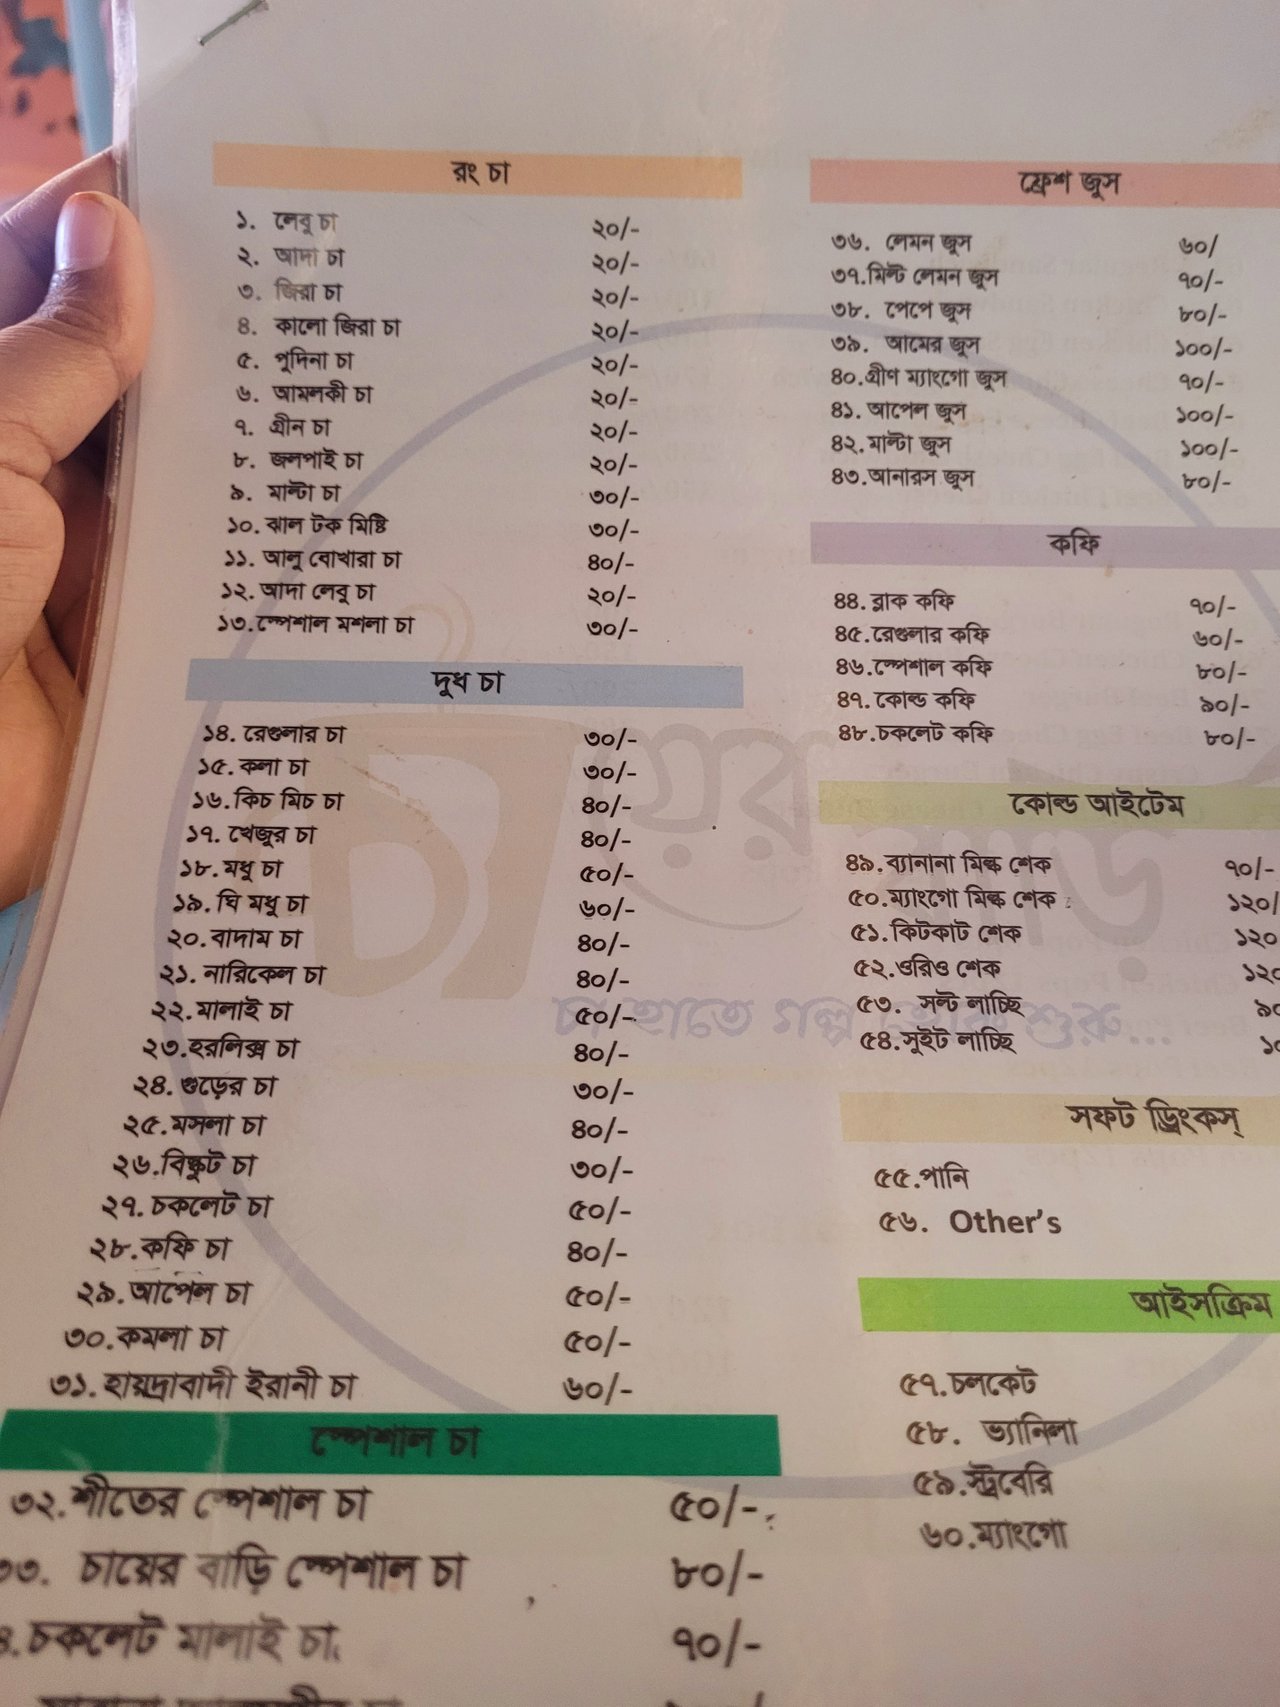 রং চা
১. লেবু চা ২০/-
২. আদা চা ২০/-
৩. জিরা চা ২০/-
৪. কালো জিরা চা ২০/-
৫. পুদিনা চা ২০/-
৬. আমলকী চা ২০/-
৭. গ্রীন চা ২০/-
৮. জলপাই চা ২০/-
৯. মাল্টা চা ৩০/-
১০. ঝাল টক মিষ্টি ৩০/-
১১. আলু বোখারা চা ৪০/-
১২. আদা লেবু চা ২০/-
১৩.স্পেশাল মশলা চা ৩০/-
দুধ চা
১৪. রেগুলার চা ৩০/-
১৫. কলা চা ৩০/-
১৬. কিচ মিচ চা ৪০/-
১৭. খেজুর চা ৪০/-
১৮. মধু চা ৫০/-
১৯. ঘি মধু চা ৬০/-
২০. বাদাম চা ৪০/-
২১. নারিকেল চা ৪০/-
২২. মালাই চা ৫০/-
২৩.হরলিক্স চা ৪০/-
২৪. গুড়ের চা ৩০/-
২৫. মসলা চা ৪০/-
২৬.বিস্কুট চা ৩০/-
২৭. চকলেট চা ৫০/-
২৮.কফি চা ৪০/-
২৯. আপেল চা ৫০/-
৩০.কমলা চা ৫০/-
৩১. হায়দ্রাবাদী ইরানী চা ৬০/-
স্পেশাল চা
৩২.শীতের স্পেশাল চা ৫০/-
৩৩. চায়ের বাড়ি স্পেশাল চা ৮০/-
৪.চকলেট মালাই চা ৭০/-
ফ্রেশ জুস
৩৬. লেমন জুস ৬০/
৩৭.মিন্ট লেমন জুস ৭০/-
৩৮. পেপে জুস ৮০/-
৩৯. আমের জুস ১০০/-
৪০.গ্রীণ ম্যাংগো জুস ৭০/-
৪১. আপেল জুস ১০০/-
৪২. মাল্টা জুস ১০০/-
৪৩.আনারস জুস ৮০/-
কফি
৪৪. ব্লাক কফি ৭০/-
৪৫.রেগুলার কফি ৬০/-
৪৬.স্পেশাল কফি ৮০/-
৪৭. কোল্ড কফি ৯০/-
৪৮.চকলেট কফি ৮০/-
কোল্ড আইটেম
৪৯. ব্যানানা মিল্ক শেক ৭০/-
৫০.ম্যাংগো মিল্ক শেক ১২০/
৫১. কিটকাট শেক ১২০
৫২.ওরিও শেক ১২০
৫৩. সল্ট লাচ্ছি ৯০
৫৪.সুইট লাচ্ছি
চা হাতে গল্প হোক শুরু...
সফট ড্রিংকস্
৫৫.পানি
৫৬. Other's
আইসক্রিম
৫৭.চলকেট
৫৮. ভ্যানিলা
৫৯.স্ট্রবেরি
৬০.ম্যাংগো